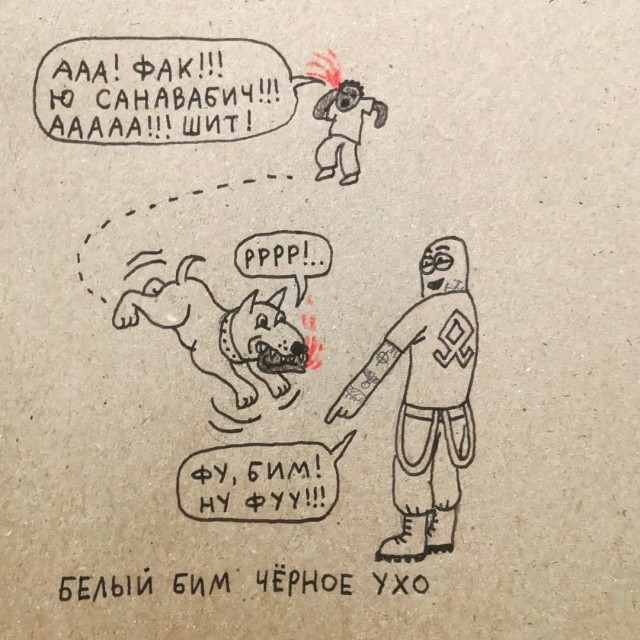 ААА! ФАК!!!
Ю САНАВАБИЧ!!!
ААААА!!! ШИТ!
РРРР!..
ФУ, БИМ!
НУ ФУУ!!!
БЕЛЫЙ БИМ ЧЁРНОЕ УХО